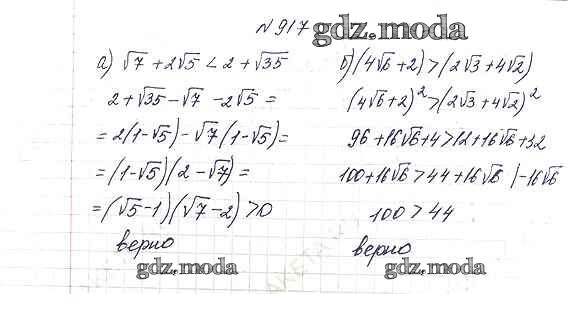 №917 gdz.moda
а) √7 + 2√5 < 2 + √35
2+√35-√7 -2√5 =
= 2(1-√5) - √7(1-√5) =
= (1-√5)(2-√7) =
= (√5-1)(√7-2) > 0
верно
gdz.moda
б) (4√6 + 2) > (2√3 + 4√2)
(4√6+2)² > (2√3+4√2)²
96 + 16√6+4 > 12+16√6+32
100+16√6 > 44+16√6 |-16√6
100 > 44
верно
gdz.moda